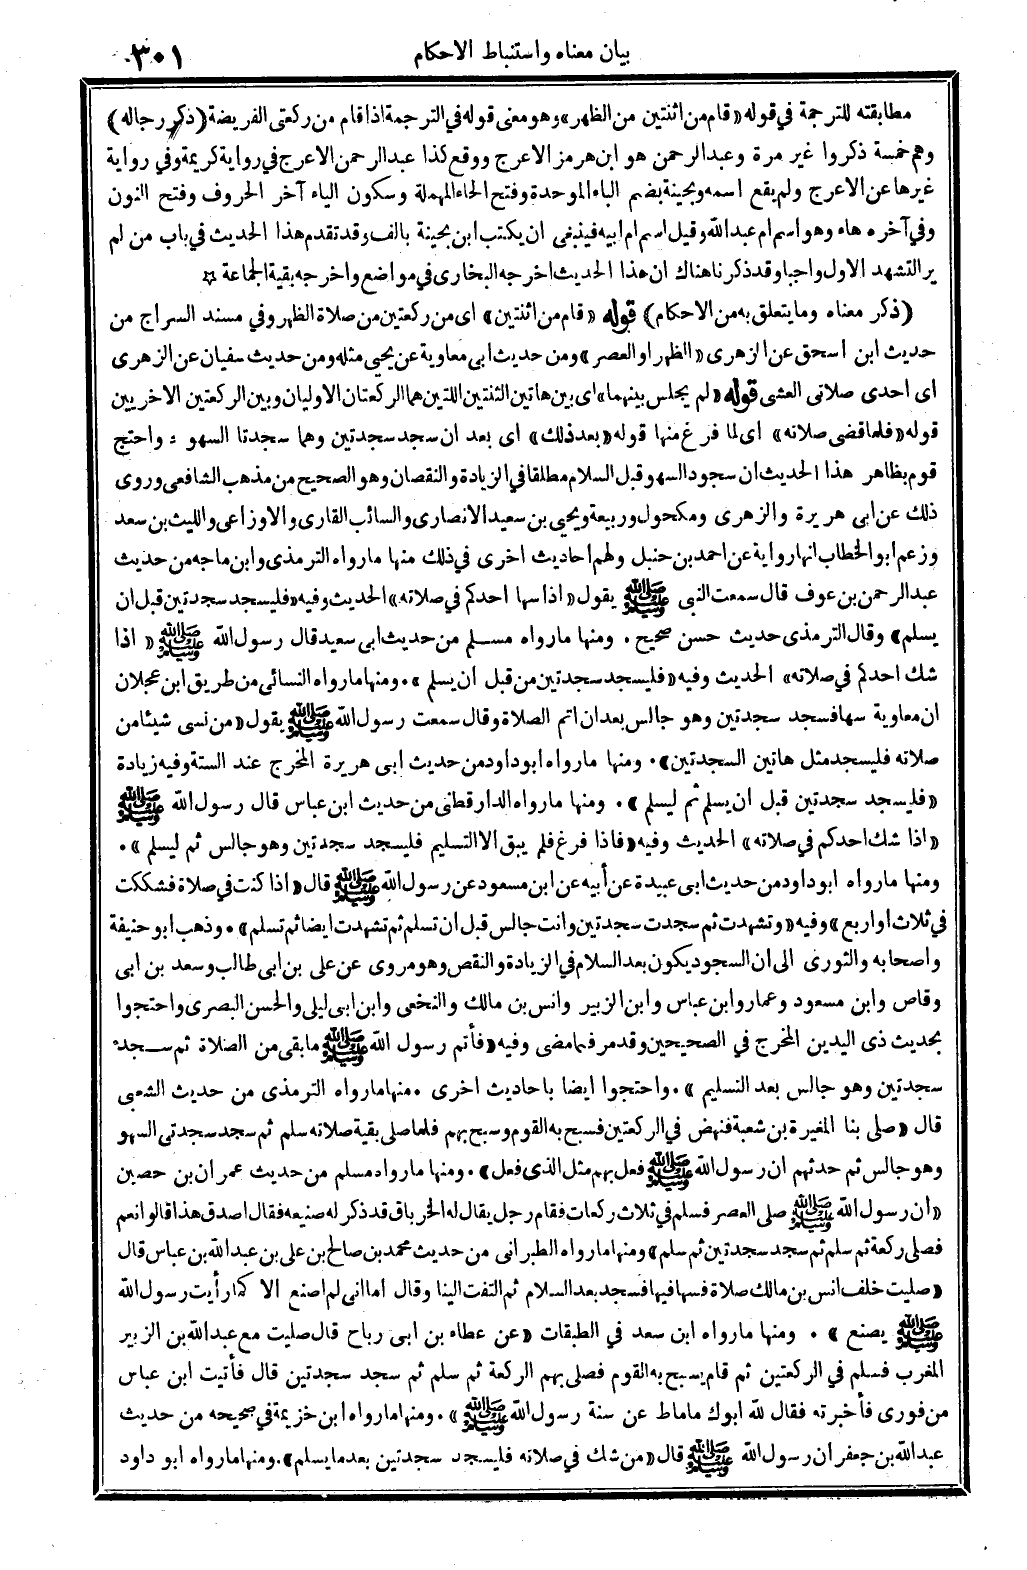 بيان معناه واستنباط الاحكام
٣٠١
مطابقته للترجمة في قوله «قام من اثنتين من الظهر» وهو معنى قوله في الترجمة اذا قام من ركعتى الفريضة (ذكر رجاله)
وهم خمسة ذكروا غير مرة وعبد الرحمن هو ابن هرمز الاعرج ووقع كذا عبد الرحمن الاعرج في رواية كريمة وفي رواية
غيرها عن الاعرج ولم يقع اسمه وبحينة بضم الباء الموحدة وفتح الحاء المهملة وسكون الياء آخر الحروف وفتح النون
وفي آخره هاء وهو اسم ام عبد الله وقيل اسم ام ابيه فينبغى ان يكتب ابن بحينة بالف وقد تقدم هذا الحديث في باب من لم
ير التشهد الاول واجبا وقد ذكرنا هناك ان هذا الحديث اخرجه البخارى في مواضع واخرجه بقية الجماعة ☆
(ذكر معناه وما يتعلق به من الاحكام) قوله «قام من اثنتين» اى من ركعتين من صلاة الظهر وفي مسند السراج من
حديث ابن اسحق عن الزهرى «الظهر او العصر» ومن حديث ابى معاوية عن يحيى مثله ومن حديث سفيان عن الزهرى
اى احدى صلاتى العشى قوله «لم يجلس بينهما» اى بين هاتين الثنتين اللتين هما الركعتان الاوليان وبين الركعتين الاخريين
قوله «فلما قضى صلاته» اى لما فرغ منها قوله «بعد ذلك» اى بعد ان سجد سجدتين وهما سجدتا السهو : واحتج
قوم بظاهر هذا الحديث ان سجود السهو قبل السلام مطلقا في الزيادة والنقصان وهو الصحيح من مذهب الشافعى وروى
ذلك عن ابى هريرة والزهرى ومكحول وربيعة ويحيى بن سعيد الانصارى والسائب القارى والاوزاعى والليث بن سعد
وزعم ابو الخطاب انها رواية عن احمد بن حنبل ولهم احاديث اخرى في ذلك منها ما رواه الترمذى وابن ماجه من حديث
عبد الرحمن بن عوف قال سمعت النبى ﷺ يقول «اذا سها احدكم في صلاته» الحديث وفيه «فليسجد سجدتين قبل ان
يسلم» وقال الترمذى حديث حسن صحيح . ومنها ما رواه مسلم من حديث ابى سعيد قال رسول الله ﷺ « اذا
شك احدكم في صلاته» الحديث وفيه «فليسجد سجدتين من قبل ان يسلم» . ومنها ما رواه النسائى من طريق ابن عجلان
ان معاوية سها فسجد سجدتين وهو جالس بعد ان اتم الصلاة وقال سمعت رسول الله ﷺ يقول «من نسى شيئا من
صلاته فليسجد مثل هاتين السجدتين» . ومنها ما رواه ابو داود من حديث ابى هريرة المخرج عند الستة وفيه زيادة
«فليسجد سجدتين قبل ان يسلم ثم ليسلم» . ومنها ما رواه الدارقطنى من حديث ابن عباس قال رسول الله ﷺ
«اذا شك احدكم في صلاته» الحديث وفيه «فاذا فرغ فلم يبق الا التسليم فليسجد سجدتين وهو جالس ثم ليسلم» .
ومنها ما رواه ابو داود من حديث ابى عبيدة عن أبيه عن ابن مسعود عن رسول الله ﷺ قال «اذا كنت في صلاة فشككت
في ثلاث او اربع» وفيه «وتشهدت ثم سجدت سجدتين وانت جالس قبل ان تسلم ثم تشهدت ايضا ثم تسلم» . وذهب ابو حنيفة
واصحابه والثورى الى ان السجود يكون بعد السلام في الزيادة والنقص وهو مروى عن على بن ابى طالب وسعد بن ابى
وقاص وابن مسعود وعمار وابن عباس وابن الزبير وانس بن مالك والنخعى وابن ابى ليلى والحسن البصرى واحتجوا
بحديث ذى اليدين المخرج في الصحيحين وقد مر فيما مضى وفيه «فأتم رسول الله ﷺ ما بقى من الصلاة ثم سجد
سجدتين وهو جالس بعد التسليم» . واحتجوا ايضا باحاديث اخرى . منها ما رواه الترمذى من حديث الشعبى
قال «صلى بنا المغيرة بن شعبة فنهض في الركعتين فسبح به القوم وسبح بهم فلما صلى بقية صلاته سلم ثم سجد سجدتى السهو
وهو جالس ثم حدثهم ان رسول الله ﷺ فعل بهم مثل الذى فعل» . ومنها ما رواه مسلم من حديث عمران بن حصين
«ان رسول الله ﷺ صلى العصر فسلم في ثلاث ركعات فقام رجل يقال له الخرباق قد ذكر له صنيعه فقال اصدق هذا قالوا نعم
فصلى ركعة ثم سلم ثم سجد سجدتين ثم سلم» ومنها ما رواه الطبرانى من حديث محمد بن صالح بن على بن عبد الله بن عباس قال
«صليت خلف انس بن مالك صلاة فسها فيها فسجد بعد السلام ثم التفت الينا وقال اما انى لم اصنع الا كما رأيت رسول الله
ﷺ يصنع» . ومنها ما رواه ابن سعد في الطبقات «عن عطاء بن ابى رباح قال صليت مع عبد الله بن الزبير
المغرب فسلم في الركعتين ثم قام يسبح به القوم فصلى بهم الركعة ثم سلم ثم سجد سجدتين قال فأتيت ابن عباس
من فورى فأخبرته فقال لله ابوك ما ماط عن سنة رسول الله ﷺ» . ومنها ما رواه ابن خزيمة في صحيحه من حديث
عبد الله بن جعفر ان رسول الله ﷺ قال «من شك في صلاته فليسجد سجدتين بعد ما يسلم» . ومنها ما رواه ابو داود